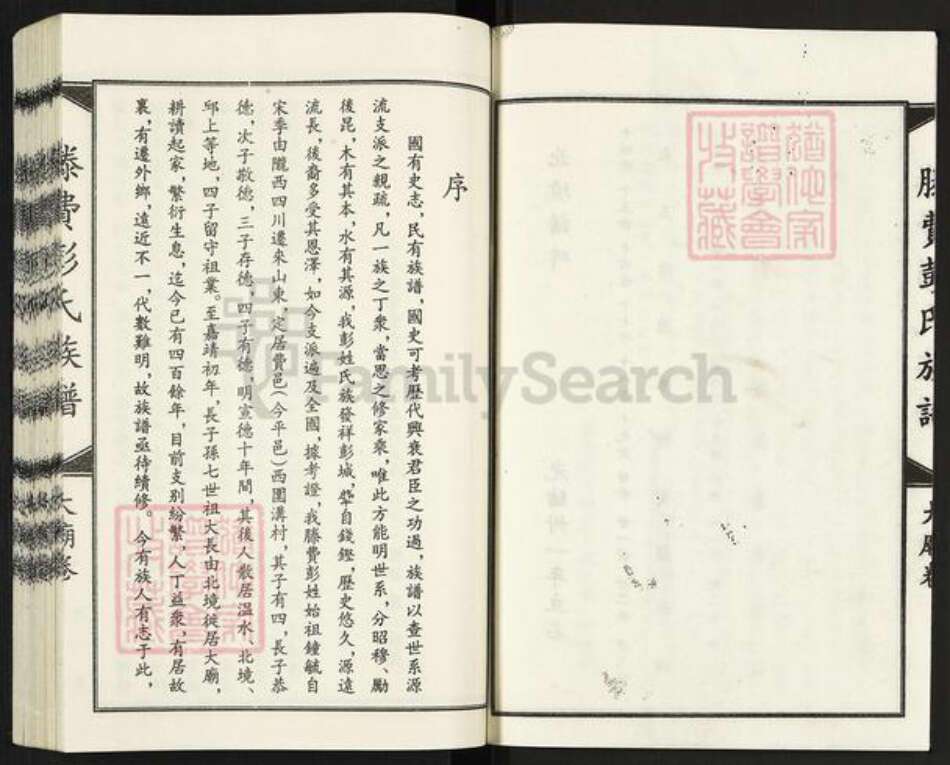 滕費彭氏族譜
大廟卷
猶他家譜學會收藏
序
國有史志，民有族譜，國史可考歷代興衰君臣之功過，族譜以查世系源
流支派之親疏，凡一族之丁衆，當思之修家乘，唯此方能明世系，分昭穆、勵
後昆，木有其本，水有其源，我彭姓氏族發祥彭城，肇自錢鏗，歷史悠久，源遠
流長，後裔多受其恩澤，如今支派遍及全國，據考證，我滕費彭姓始祖鐘毓自
宋季由隴西四川遷來山東，定居費邑（今平邑）西圍溝村，其子有四，長子恭
德，次子敬德，三子存德，四子有德，明宣德十年間，其後人散居溫水、北境、
邱上等地，四子留守祖業。至嘉靖初年，長子孫七世祖大長由北境徙居大廟，
耕讀起家，繁衍生息，迄今已有四百餘年，目前支别紛繁，人丁益衆，有居故
裏，有遷外鄉，遠近不一，代數難明，故族譜亟待續修。今有族人有志于此，
猶他家譜學會收藏
滕費彭氏族譜
大廟卷
FamilySearch